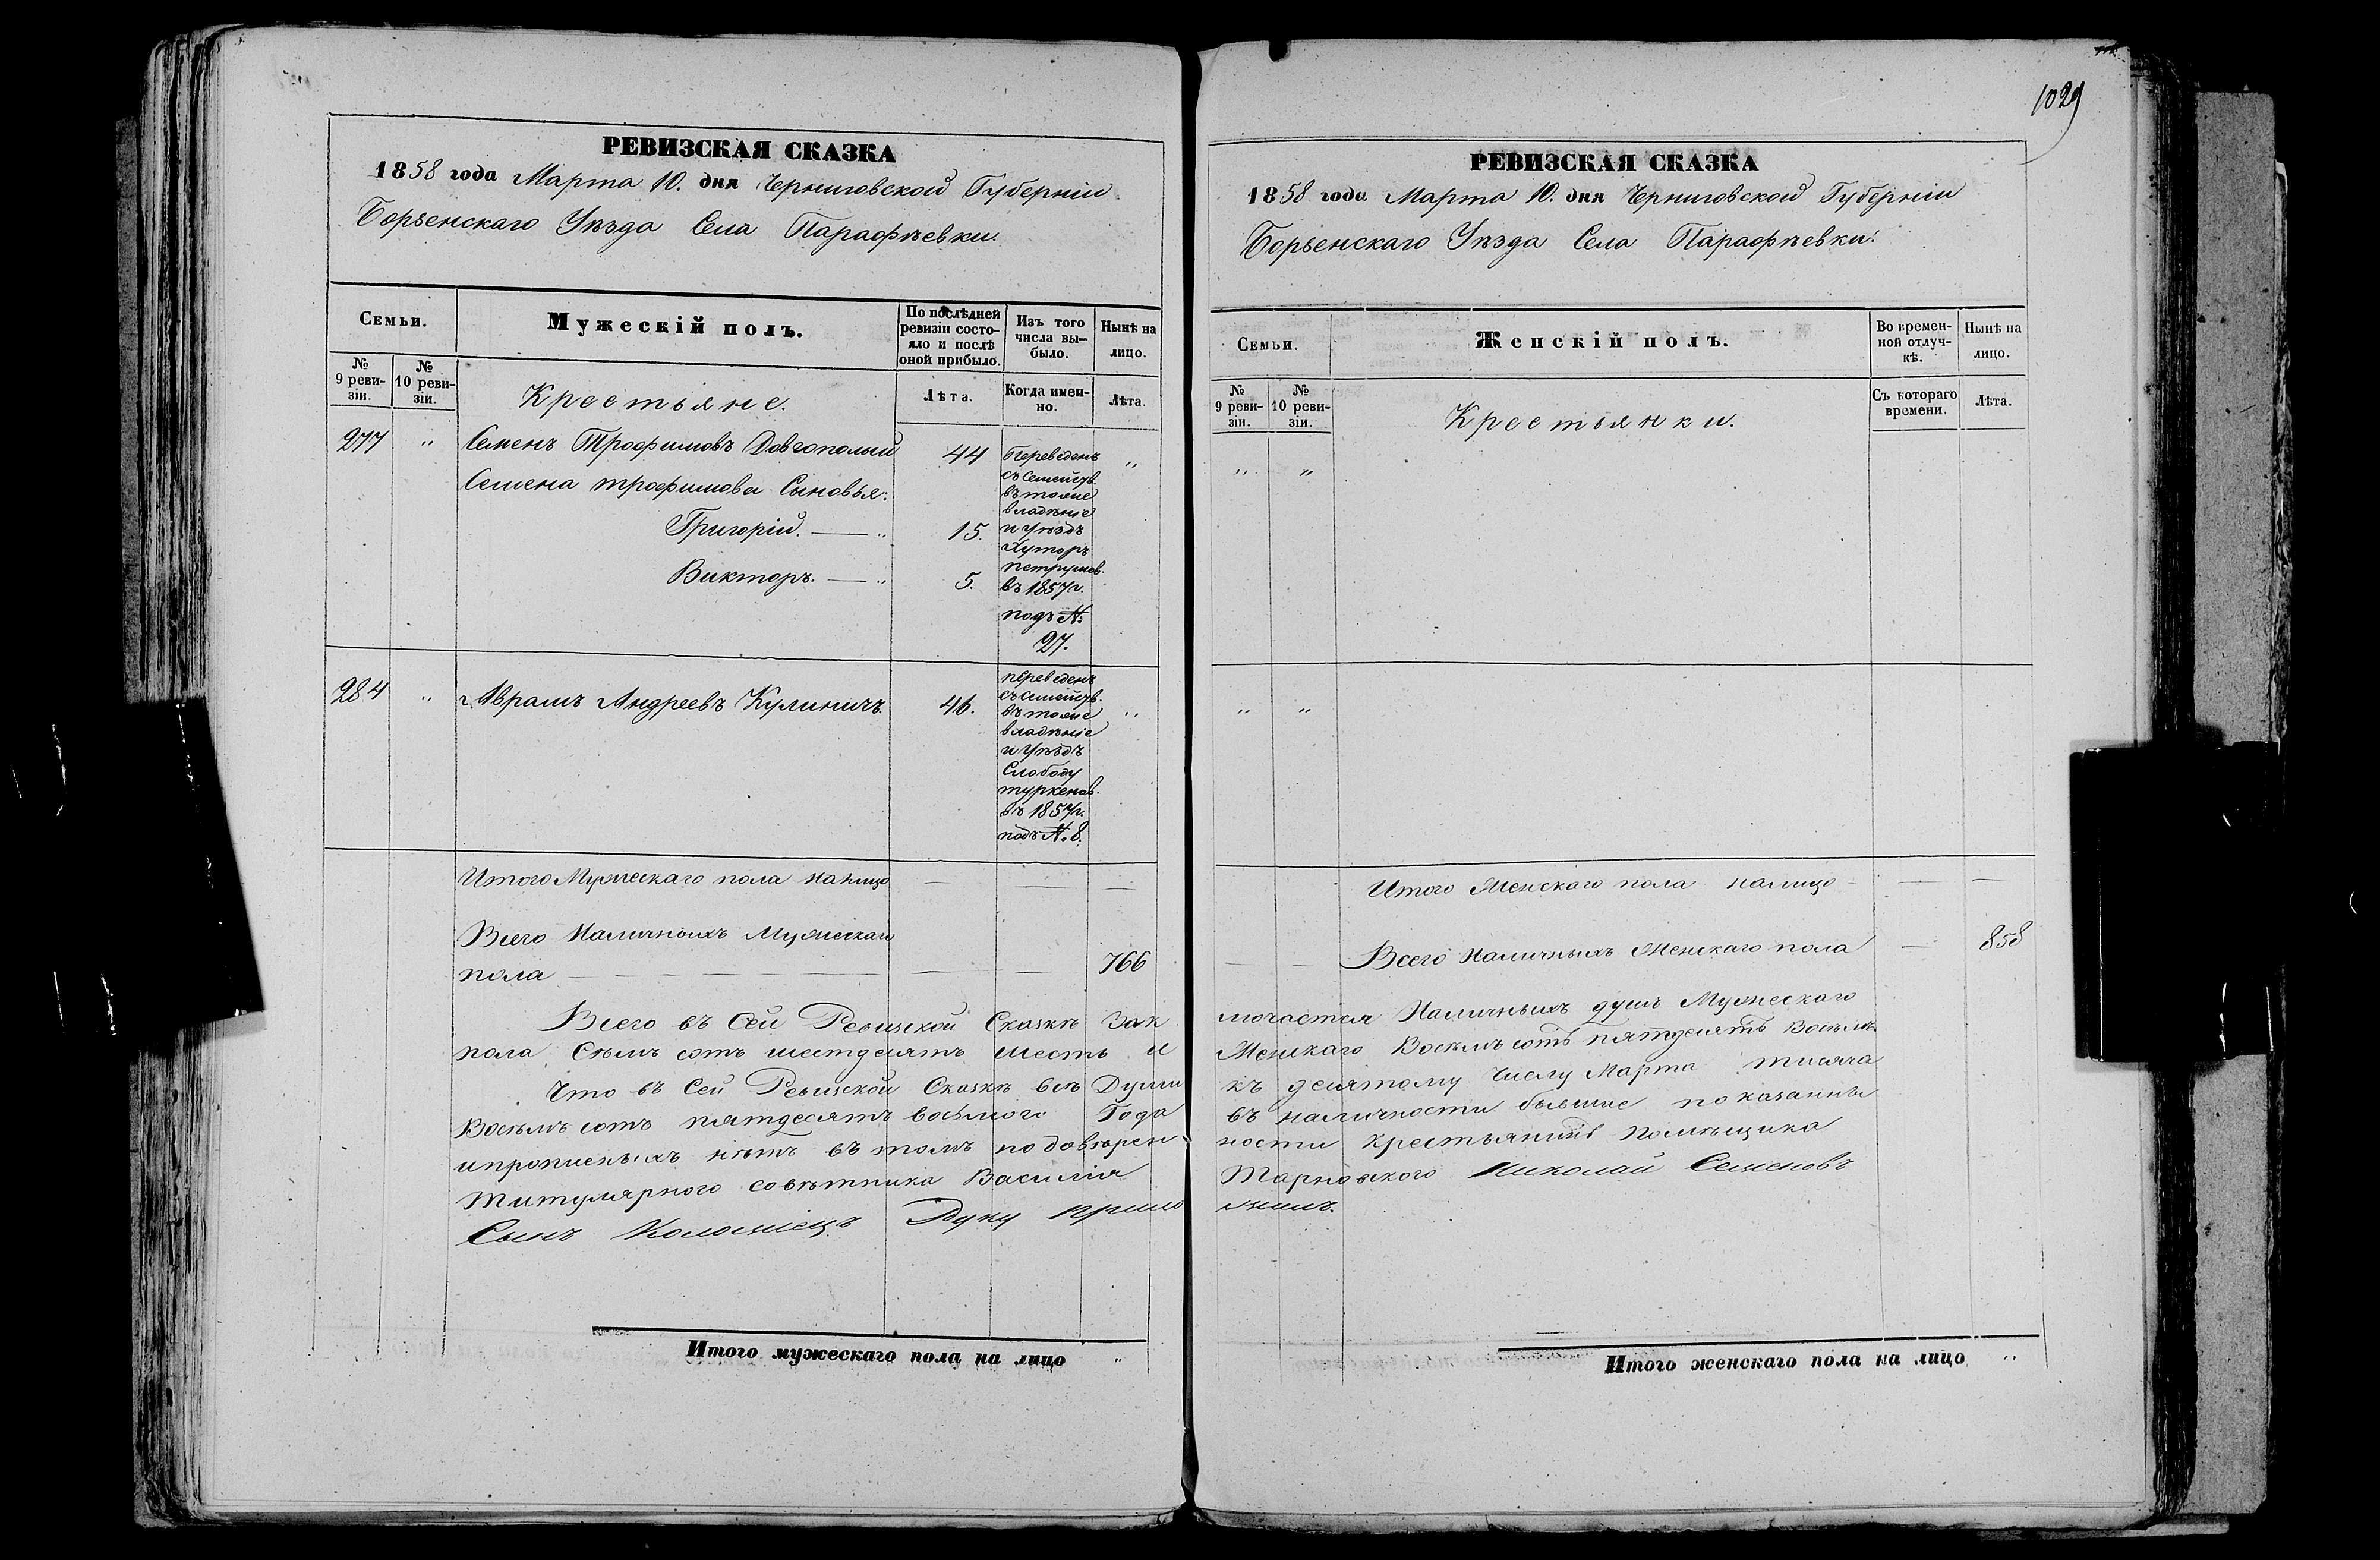 1029
РЕВИЗСКАЯ СКАЗКА
1858 года Марта 10. дня Черниговской Губерніи
Борзенскаго Уѣзда Села Парафѣевки.
Семьи.
Мужескій полъ.
По послѣдней ревизіи состояло и послѣ оной прибыло.
Изъ того числа выбыло.
Нынѣ на лицо.
№ 9 ревизіи.
№ 10 ревизіи.
Крестьяне.
Лѣта.
Когда именно.
Лѣта.
277 " Семенъ Трофимовъ Довгополый 44 "
Семена трофимова Сыновья:
Григорій. — " 15.
Викторъ. — " 5.
Переведенъ
съ семейств.
въ тоже
владѣніе
и Уѣздъ
Хуторъ
петрушев.
въ 1857 г.
подъ №
27.
284 " Аврамъ Андреевъ Кулиничъ. 46. "
переведенъ
съ семейств.
въ тоже
владѣніе
и Уѣздъ
Слободу
туркенов.
въ 1857 г.
подъ № 8.
Итого Мужескаго пола налицо — — —
Всего Наличныхъ Мужескаго
пола — — — 766
Всего въ Сей Ревизской Сказкѣ Зак
пола Сѣмъ сотъ шестдесятъ шесть и
Что въ Сей Ревизской Сказкѣ всѣ Души
Восѣмъ сотъ пятдесятъ восьмого Года
и прописныхъ нѣтъ въ томъ по довѣрен
Титулярного совѣтника Василія
Сынъ Коломіецъ Руку прило
Итого мужескаго пола на лицо "
РЕВИЗСКАЯ СКАЗКА
1858 года Марта 10. дня Черниговской Губерніи
Борзенскаго Уѣзда Села Парафѣевки.
Семьи.
Женскій полъ.
Во временной отлучкѣ.
Нынѣ на лицо.
№ 9 ревизіи.
№ 10 ревизіи.
Крестьянки.
Съ котораго времени.
Лѣта.
" "
" "
Итого Женскаго пола налицо — —
— — Всего Наличныхъ Женскаго пола — 858
лючается Наличныхъ душъ Мужескаго
Женскаго Восѣмъ сотъ пятдесятъ Восѣмъ
къ десятому Числу Марта тисяча
въ наличности бывшие показанны
ности Крестьянинъ Помѣщика
Тарновского Николай Семеновъ
жилъ.
Итого женскаго пола на лицо "